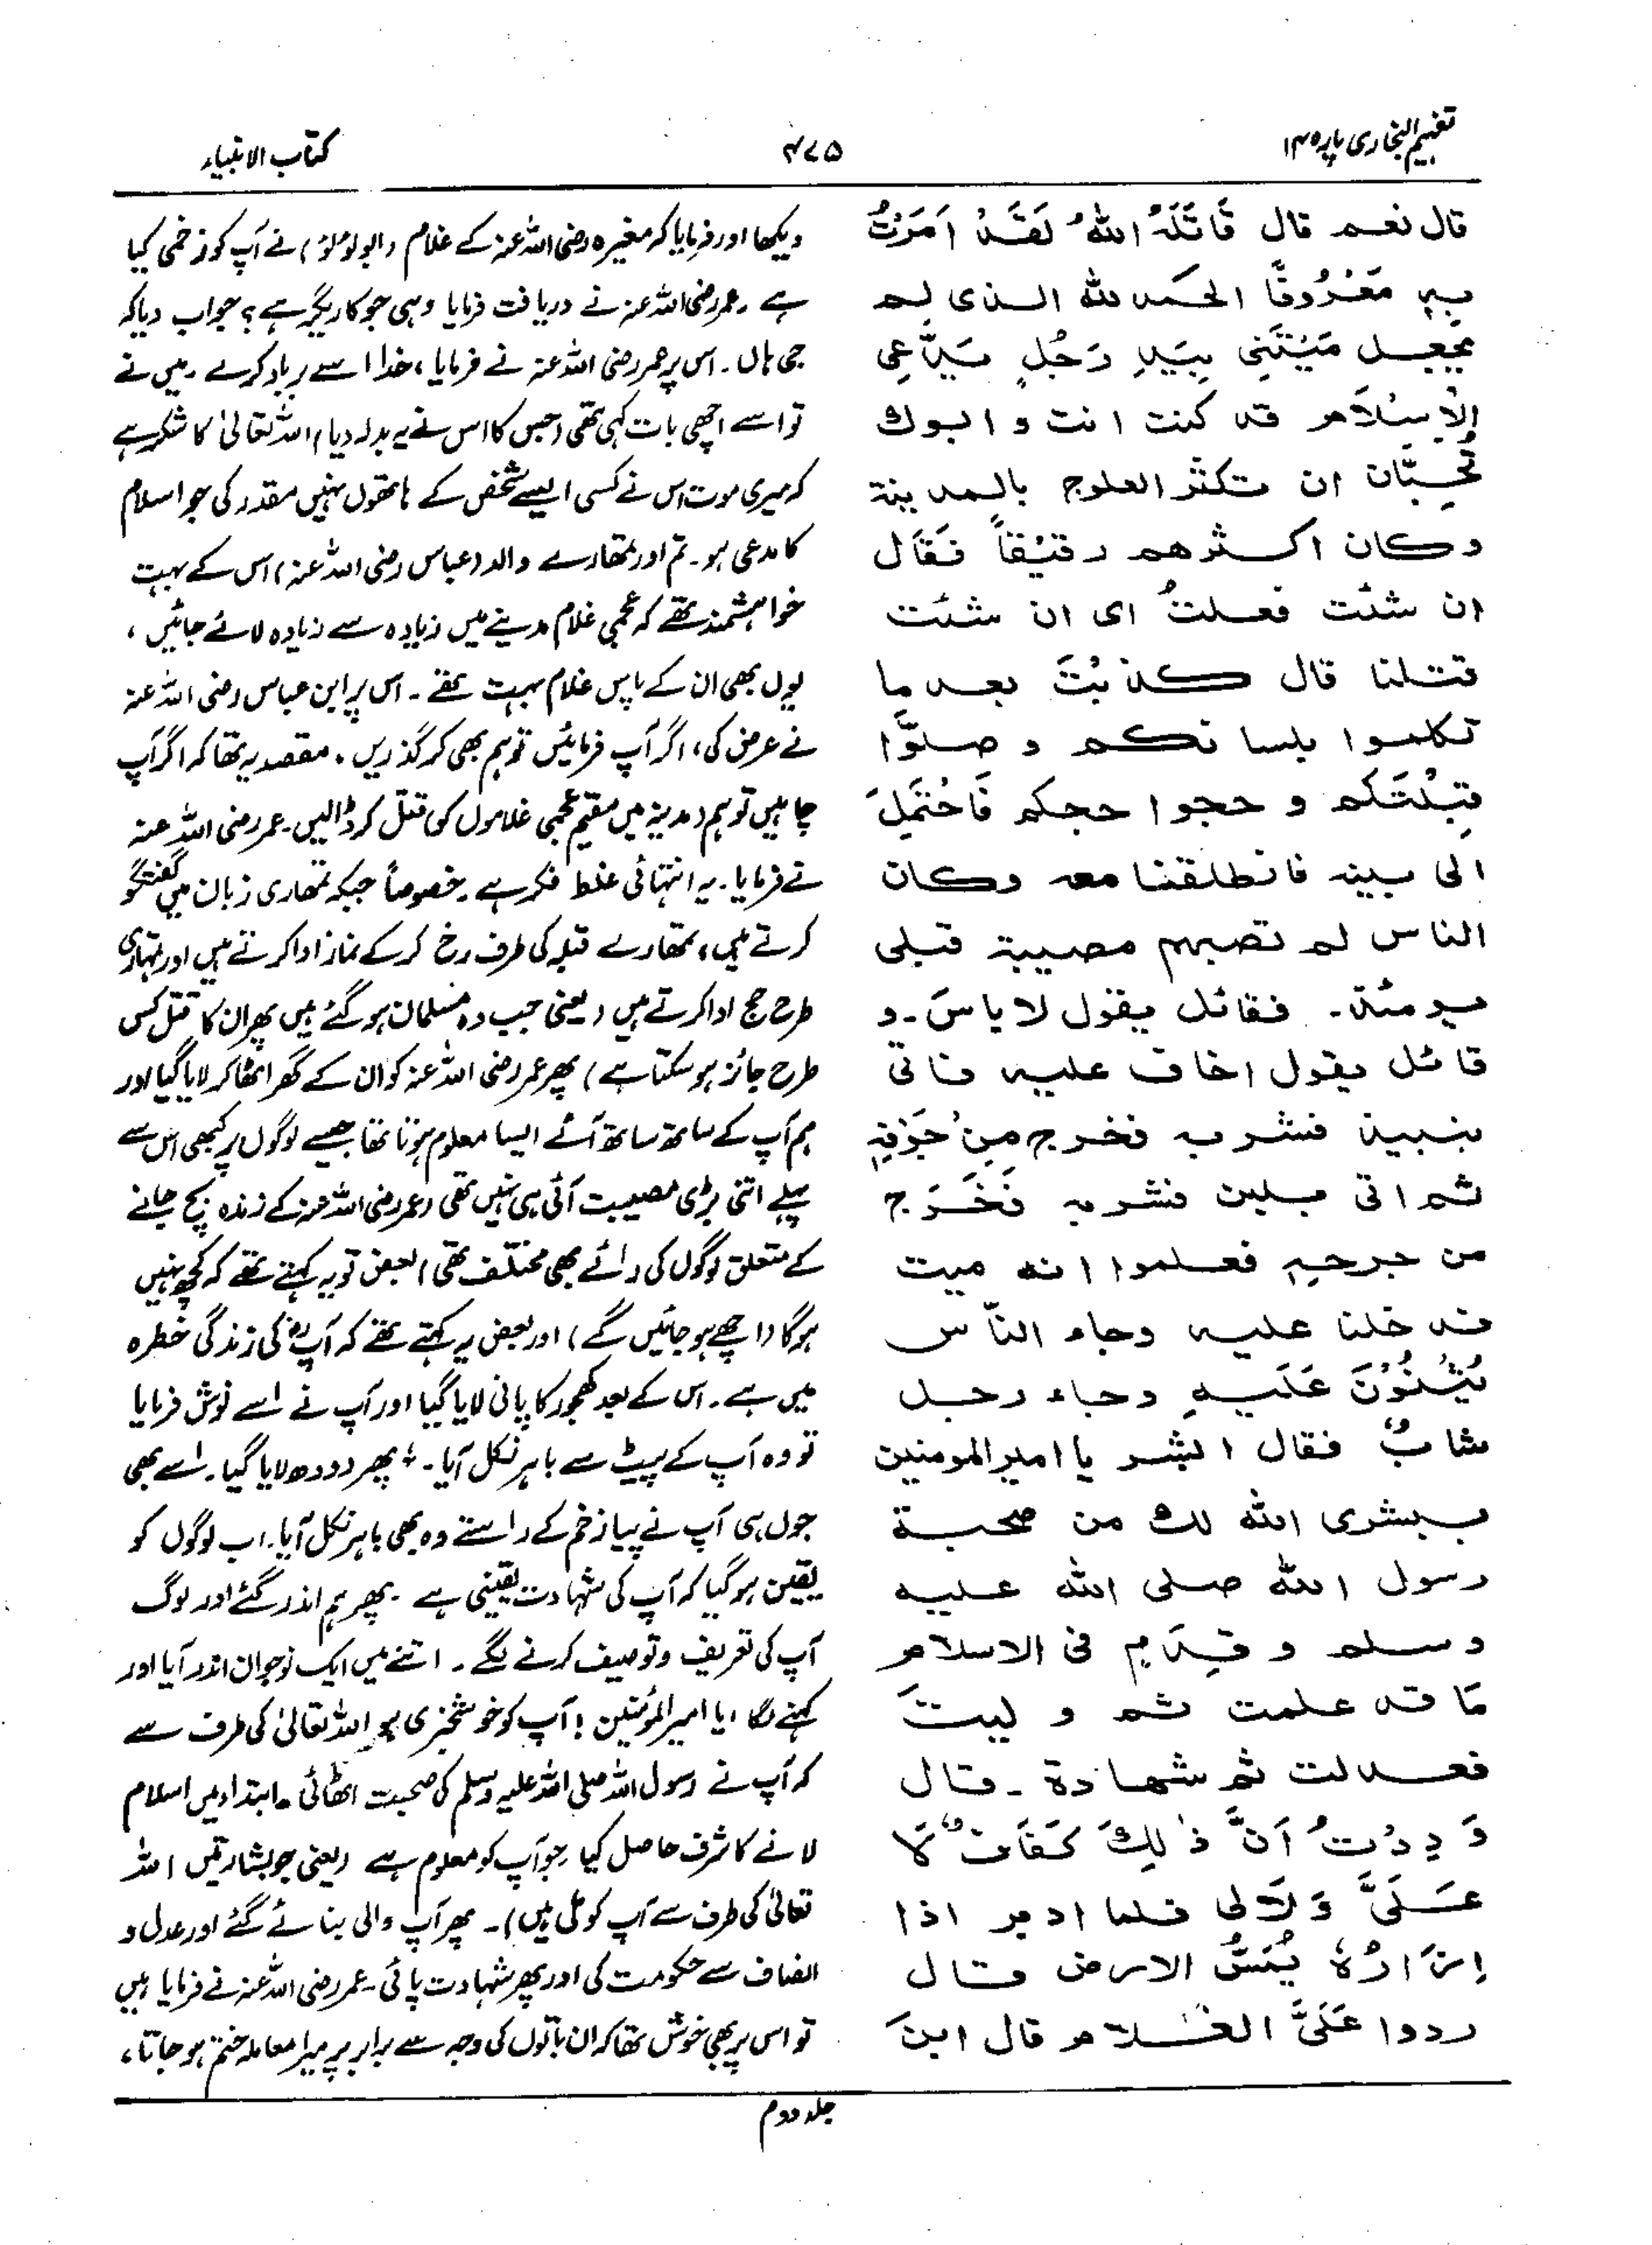 تفہیم البخاری پارہ ۱۴
۴۷۵
کتاب الانبیاء
قال نعم قال قَاتَلَہُ اللہُ لَقَدْ اَمَرْتُ
بِہٖ مَعْرُوفًا الحمد للہ الذی لم
یجعل مَیْتَتِی بِیَدِ رَجُلٍ یَدَّعِی
الْاِسْلَامَ قد کنت انت و ابوک
تُحِبَّان ان تکثر العلوج بالمدینۃ
وکان اکثرھم رقیقاً فَقَال
ان شئت فعلتُ ای ان شئت
قتلنا قال کذبْتَ بعد ما
تکلموا بلسانکم و صلَّوا
قِبْلَتَکم و حجوا حجکم فَاحْتُمِلَ
الی بیتہ فانطلقنا معہ وکان
الناس لم تصبہم مصیبۃ قبلی
یومئذ۔ فقائل یقول لاباسَ۔ و
قائل یقول اخاف علیہ فاتی
بنبیذ فشربہ فخرج مِنْ جَوْفِہٖ
ثم اتی بلبن فشربہ فَخَرَج
من جرحہٖ فعلموا انہ میت
فدخلنا علیہ وجاء النّاس
یُثْنُوْنَ عَلَیہِ وجاء رجل
شابٌّ فقال ابشر یا امیرالمومنین
ببشری اللہ لک من صحبۃ
رسول اللہ صلی اللہ علیہ
وسلم و قِدَمٍ فی الاسلام
مَا قد علمت ثم و لیتَ
فعدلت ثم شھادۃ۔ قال
وَدِدْتُ اَنَّ ذٰلِکَ کَفَافٌ لَا
عَلَیَّ وَلَالِی فلما ادبر اذا
اِزَارُہٗ یُمَسُّ الارض قال
ردوا عَلَیَّ الغلام قال ابنَ
دیکھا اور فرمایا کہ مغیرہ رضی اللہ عنہ کے غلام (ابولؤلؤ) نے آپ کو زخمی کیا
ہے۔ عمر رضی اللہ عنہ نے دریافت فرمایا وہی جو کاریگر ہے؟ جواب دیا کہ
جی ہاں۔ اس پر عمر رضی اللہ عنہ نے فرمایا، خدا اسے برباد کرے۔ میں نے
تو اسے اچھی بات کہی تھی (جس کا اس نے یہ بدلہ دیا) اللہ تعالیٰ کا شکر ہے
کہ میری موت اس نے کسی ایسے شخص کے ہاتھوں نہیں مقدر کی جو اسلام
کا مدعی ہو۔ تم اور تمھارے والد (عباس رضی اللہ عنہ) اس کے بہت
خواہشمند تھے کہ عجمی غلام مدینے میں زیادہ سے زیادہ لائے جائیں،
یوں بھی ان کے پاس غلام بہت تھے۔ اس پر ابن عباس رضی اللہ عنہ
نے عرض کی، اگر آپ فرمائیں تو ہم بھی کر گذریں۔ مقصد یہ تھا کہ اگر آپ
چاہیں تو ہم (مدینہ میں مقیم عجمی غلاموں کو) قتل کر ڈالیں۔ عمر رضی اللہ عنہ
نے فرمایا۔ یہ انتہائی غلط فکر ہے۔ خصوصاً جبکہ تمھاری زبان میں گفتگو
کرتے ہیں، تمھارے قبلہ کی طرف رخ کر کے نماز ادا کرتے ہیں اور تمہاری
طرح حج ادا کرتے ہیں (یعنی جب وہ مسلمان ہو گئے ہیں پھر ان کا قتل کس
طرح جائز ہو سکتا ہے) پھر عمر رضی اللہ عنہ کو ان کے گھر اٹھا کر لایا گیا اور
ہم آپ کے ساتھ ساتھ آئے ایسا معلوم ہوتا تھا جیسے لوگوں پر کبھی اس سے
پہلے اتنی بڑی مصیبت آئی ہی نہیں تھی (عمر رضی اللہ عنہ کے زندہ بچ جانے
کے متعلق لوگوں کی رائے بھی مختلف تھی) بعض تو یہ کہتے تھے کہ کچھ نہیں
ہوگا (اچھے ہو جائیں گے) اور بعض یہ کہتے تھے کہ آپؓ کی زندگی خطرہ
میں ہے۔ اس کے بعد کھجور کا پانی لایا گیا اور آپ نے اسے نوش فرمایا
تو وہ آپ کے پیٹ سے باہر نکل آیا۔ پھر دودھ لایا گیا۔ اسے بھی
جوں ہی آپ نے پیا زخم کے راستے وہ بھی باہر نکل آیا۔ اب لوگوں کو
یقین ہو گیا کہ آپ کی شہادت یقینی ہے۔ پھر ہم اندر گئے اور لوگ
آپ کی تعریف و توصیف کرنے لگے۔ اتنے میں ایک نوجوان اندر آیا اور
کہنے لگا، یا امیر المؤمنین! آپ کو خوشخبری ہو اللہ تعالیٰ کی طرف سے
کہ آپ نے رسول اللہ صلی اللہ علیہ وسلم کی صحبت اٹھائی۔ ابتداء میں اسلام
لانے کا شرف حاصل کیا جو آپ کو معلوم ہے (یعنی جو بشارتیں اللہ
تعالیٰ کی طرف سے آپ کو ملی ہیں)۔ پھر آپ والی بنائے گئے اور عدل و
انصاف سے حکومت کی اور پھر شہادت پائی۔ عمر رضی اللہ عنہ نے فرمایا میں
تو اس پر بھی خوش تھا کہ ان باتوں کی وجہ سے برابر پر میرا معاملہ ختم ہو جاتا،
جلد دوم